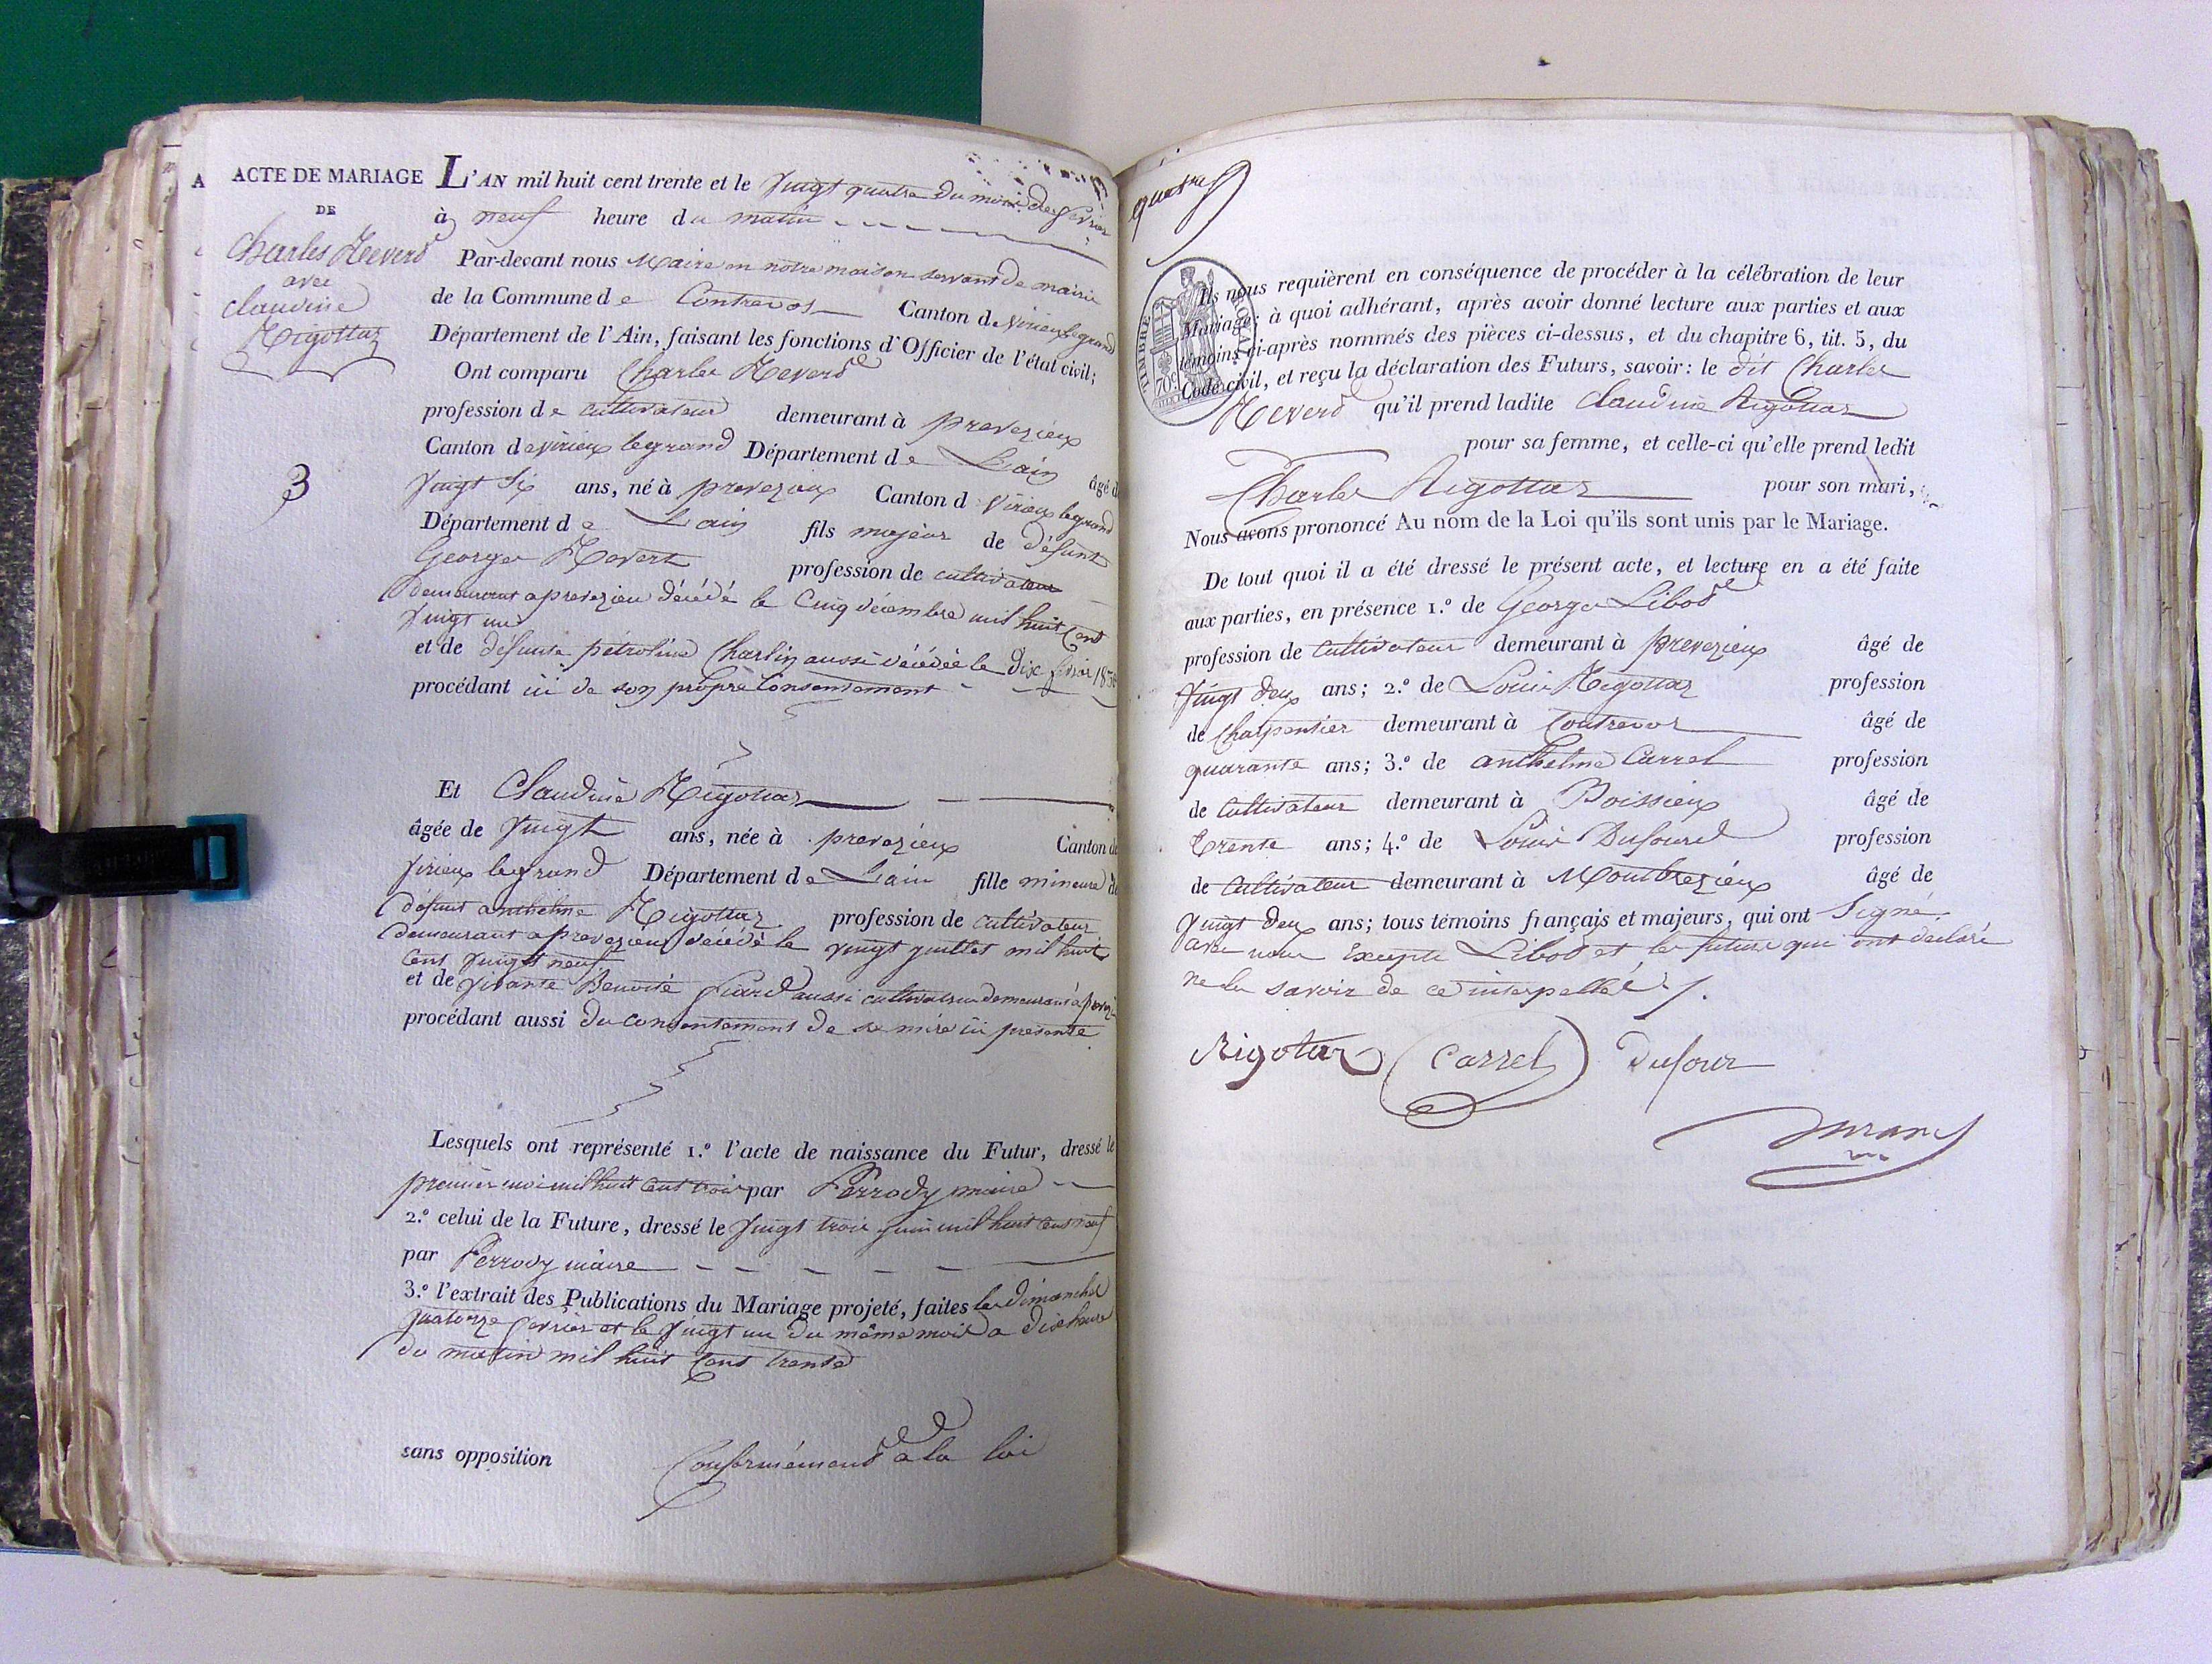 A
ACTE DE MARIAGE
DE
Charles Reverd
avec
claudine
Rigottaz
3
L'AN mil huit cent trente et le vingt quatre du mois de fevrier
à neuf heure du matin
Par-devant nous Maire en notre maison servant de mairie
de la Commune de Contrevos Canton de virieux legrand
Département de l'Ain, faisant les fonctions d'Officier de l'état civil;
Ont comparu Charles Reverd
profession de cultivateur demeurant à prevezieux
Canton de virieux legrand Département de Lain âgé d
vingt six ans, né à prevezieux Canton d virieux legrand
Département de Lain fils majeur de défunt
George Revert profession de cultivateur
demeurant a prevezieu décédé le Cinq décembre mil huit cent
vingt un
et de défunte pétroline Charlin aussi décédée le Dix fevrier 1830
procédant ici de son propre Consentement
Et Claudine Rigottaz
âgée de vingt ans, née à prevezieux Canton de
virieux legrand Département de Lain fille mineure de
défunt anthelme Rigottaz profession de cultivateur
demeurant a prevezieux décédé le vingt juillet mil huit
Cent vingt neuf
et de vivante Benoite aussi cultivateur demeurant a
procédant aussi du consentement de sa mère ici présente
Lesquels ont représenté 1.º l'acte de naissance du Futur, dressé le
premier mai mil huit cent trois par Perrody maire
2.º celui de la Future, dressé le vingt trois juin mil huit cent neuf
par Perrody maire
3.º l'extrait des Publications du Mariage projeté, faites le dimanche
quatorze fevrier et le vingt un du même mois a dix heure
du matin mil huit Cent trente
sans opposition Conformément a la loi
quatre
TIMBRE ROYAL
70
Ils nous requièrent en conséquence de procéder à la célébration de leur
Mariage; à quoi adhérant, après avoir donné lecture aux parties et aux
témoins ci-après nommés des pièces ci-dessus, et du chapitre 6, tit. 5, du
Code civil, et reçu la déclaration des Futurs, savoir: le dit Charles
Reverd qu'il prend ladite Claudine Rigottaz
pour sa femme, et celle-ci qu'elle prend ledit
Charles Rigottaz pour son mari,
Nous avons prononcé Au nom de la Loi qu'ils sont unis par le Mariage.
De tout quoi il a été dressé le présent acte, et lecture en a été faite
aux parties, en présence 1.º de George Libod
profession de Cultivateur demeurant à prevezieux âgé de
vingt deux ans; 2.º de Louis Rigottaz profession
de Charpentier demeurant à Contrevos âgé de
quarante ans; 3.º de anthelme Carrel profession
de Cultivateur demeurant à Boissieux âgé de
trente ans; 4.º de Louis Dufourd profession
de Cultivateur demeurant à Montbrezieux âgé de
vingt deux ans; tous témoins français et majeurs, qui ont Signé
avec nous Excepté Libod et les future qui ont declaré
ne le savoir de ce interpellé
Rigotaz Carrel dufour